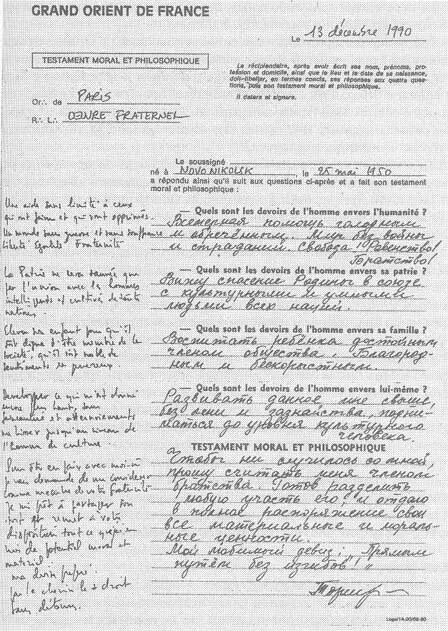 GRAND ORIENT DE FRANCE
Le 13 décembre 1990
TESTAMENT MORAL ET PHILOSOPHIQUE
Le récipiendaire, après avoir écrit ses nom, prénoms, pro-
fession et domicile, ainsi que le lieu et la date de sa naissance,
doit libeller, en termes concis, ses réponses aux quatre ques-
tions, puis son testament moral et philosophique.
Il datera et signera.
Or∴ de PARIS
R∴ L∴ OEUVRE FRATERNEL
Le soussigné
né à NOVONIKOLSK, le 25 mai 1950
a répondu ainsi qu'il suit aux questions ci-après et a fait son testament
moral et philosophique :
Une aide sans limite à ceux
qui ont faim et qui sont opprimés.
Un monde sans guerre et sans souffrance
Liberté Egalité Fraternité
— Quels sont les devoirs de l'homme envers l'humanité ?
Всемерная помощь голодным
и обречённым. Мир без войны
и страданий. Свобода! Равенство!
Братство!
La Patrie ne sera sauvée que
par l'union avec les hommes
intelligents et cultivés de toute
nations.
— Quels sont les devoirs de l'homme envers sa patrie ?
Вижу спасение Родины в союзе
с культурными и умными
людьми всех наций.
Elever un enfant pour qu'il
soit digne d'être membre de la
société, qu'il soit noble de
sentiments et généreux.
— Quels sont les devoirs de l'homme envers sa famille ?
Воспитать ребёнка достойным
членом общества. Благород-
ным и бескорыстным.
Développer ce qui m'est donné
sans paresse et
me hisser jusqu'au niveau de
l'homme de culture.
— Quels sont les devoirs de l'homme envers lui-même ?
Развивать данное мне свыше,
без лени и зазнайства, подни-
маться до уровня культурного
человека.
TESTAMENT MORAL ET PHILOSOPHIQUE
Чтобы ни случилось со мной,
прошу считать меня членом
братства. Готов разделить
любую участь его и отдаю
в полное распоряжение свои
все материальные и мораль-
ные ценности.
Мой любимый девиз: „Прямым
путём без изгибов!"
je vous demande de me considérer
comme membre de votre fraternité
je suis prêt à partager son
sort et remet à votre
disposition tout ce que j'ai
de potentiel moral et
matériel.
ma devise préférée
par le chemin le + droit
sans détours.